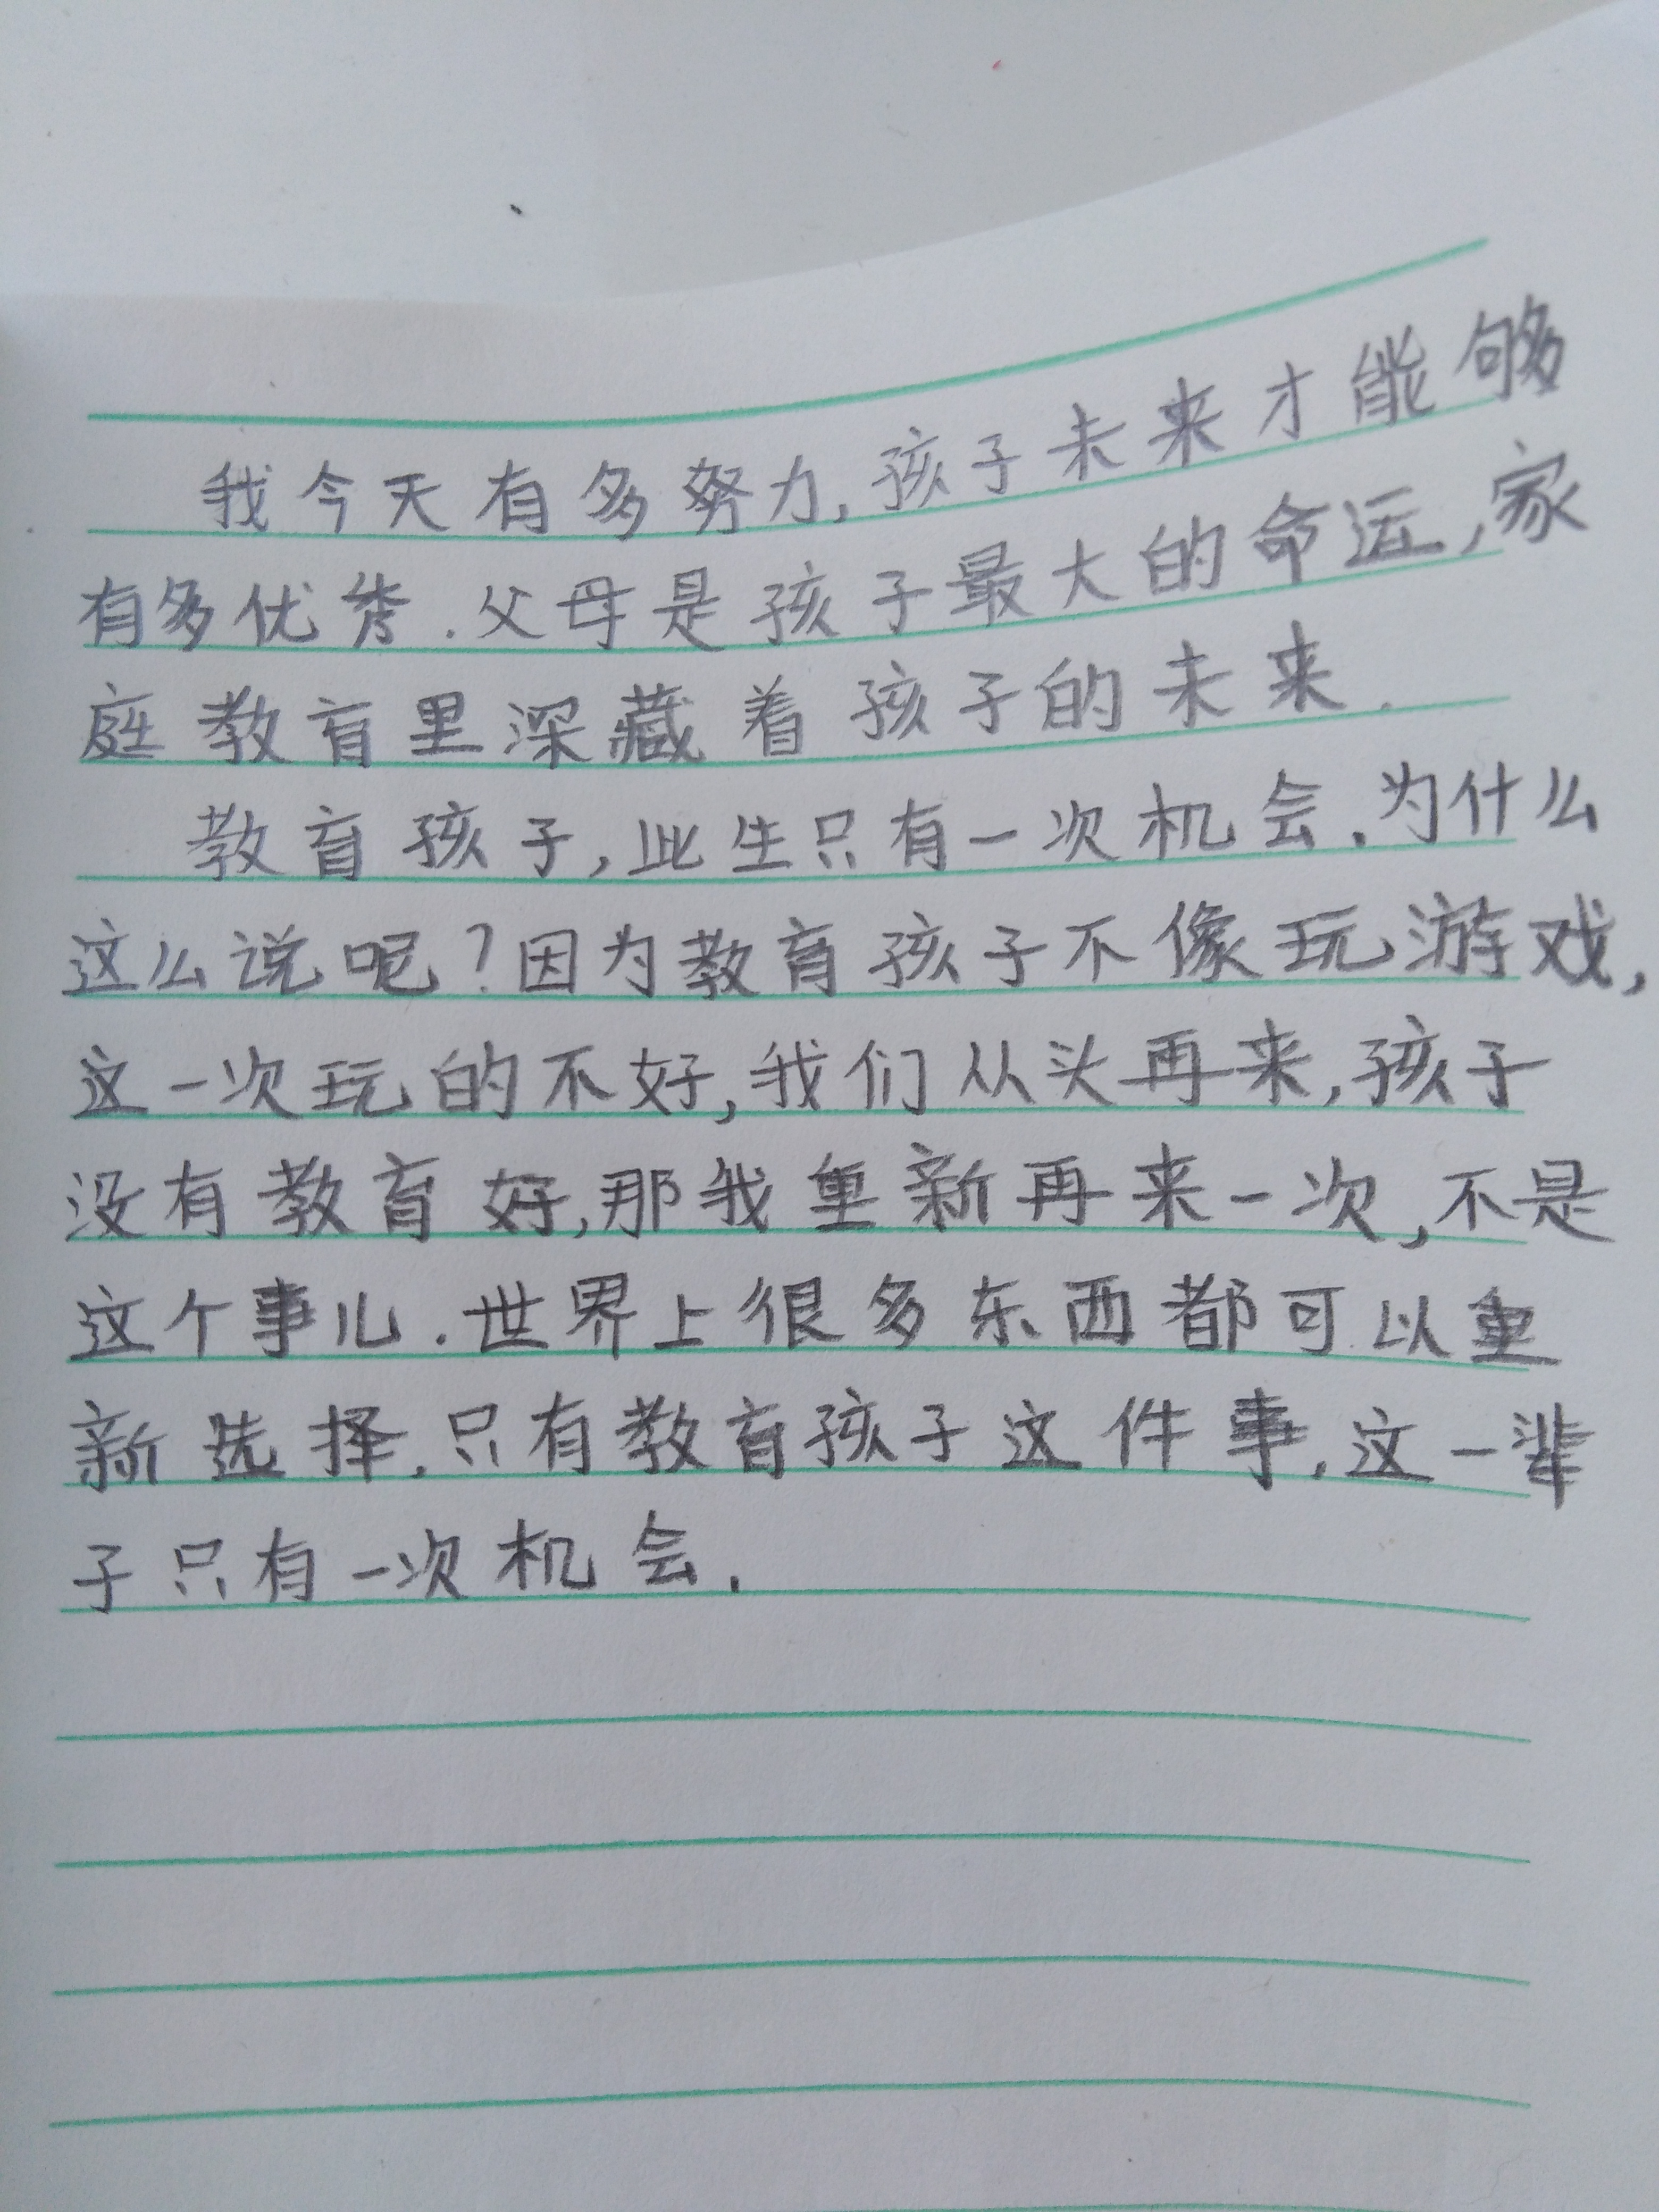 我今天有多努力,孩子未来才能够
有多优秀.父母是孩子最大的命运,家
庭教育里深藏着孩子的未来.
教育孩子,此生只有一次机会.为什么
这么说呢?因为教育孩子不像玩游戏,
这一次玩的不好,我们从头再来,孩子
没有教育好,那我重新再来一次,不是
这个事儿.世界上很多东西都可以重
新选择.只有教育孩子这件事.这一辈
子只有一次机会.